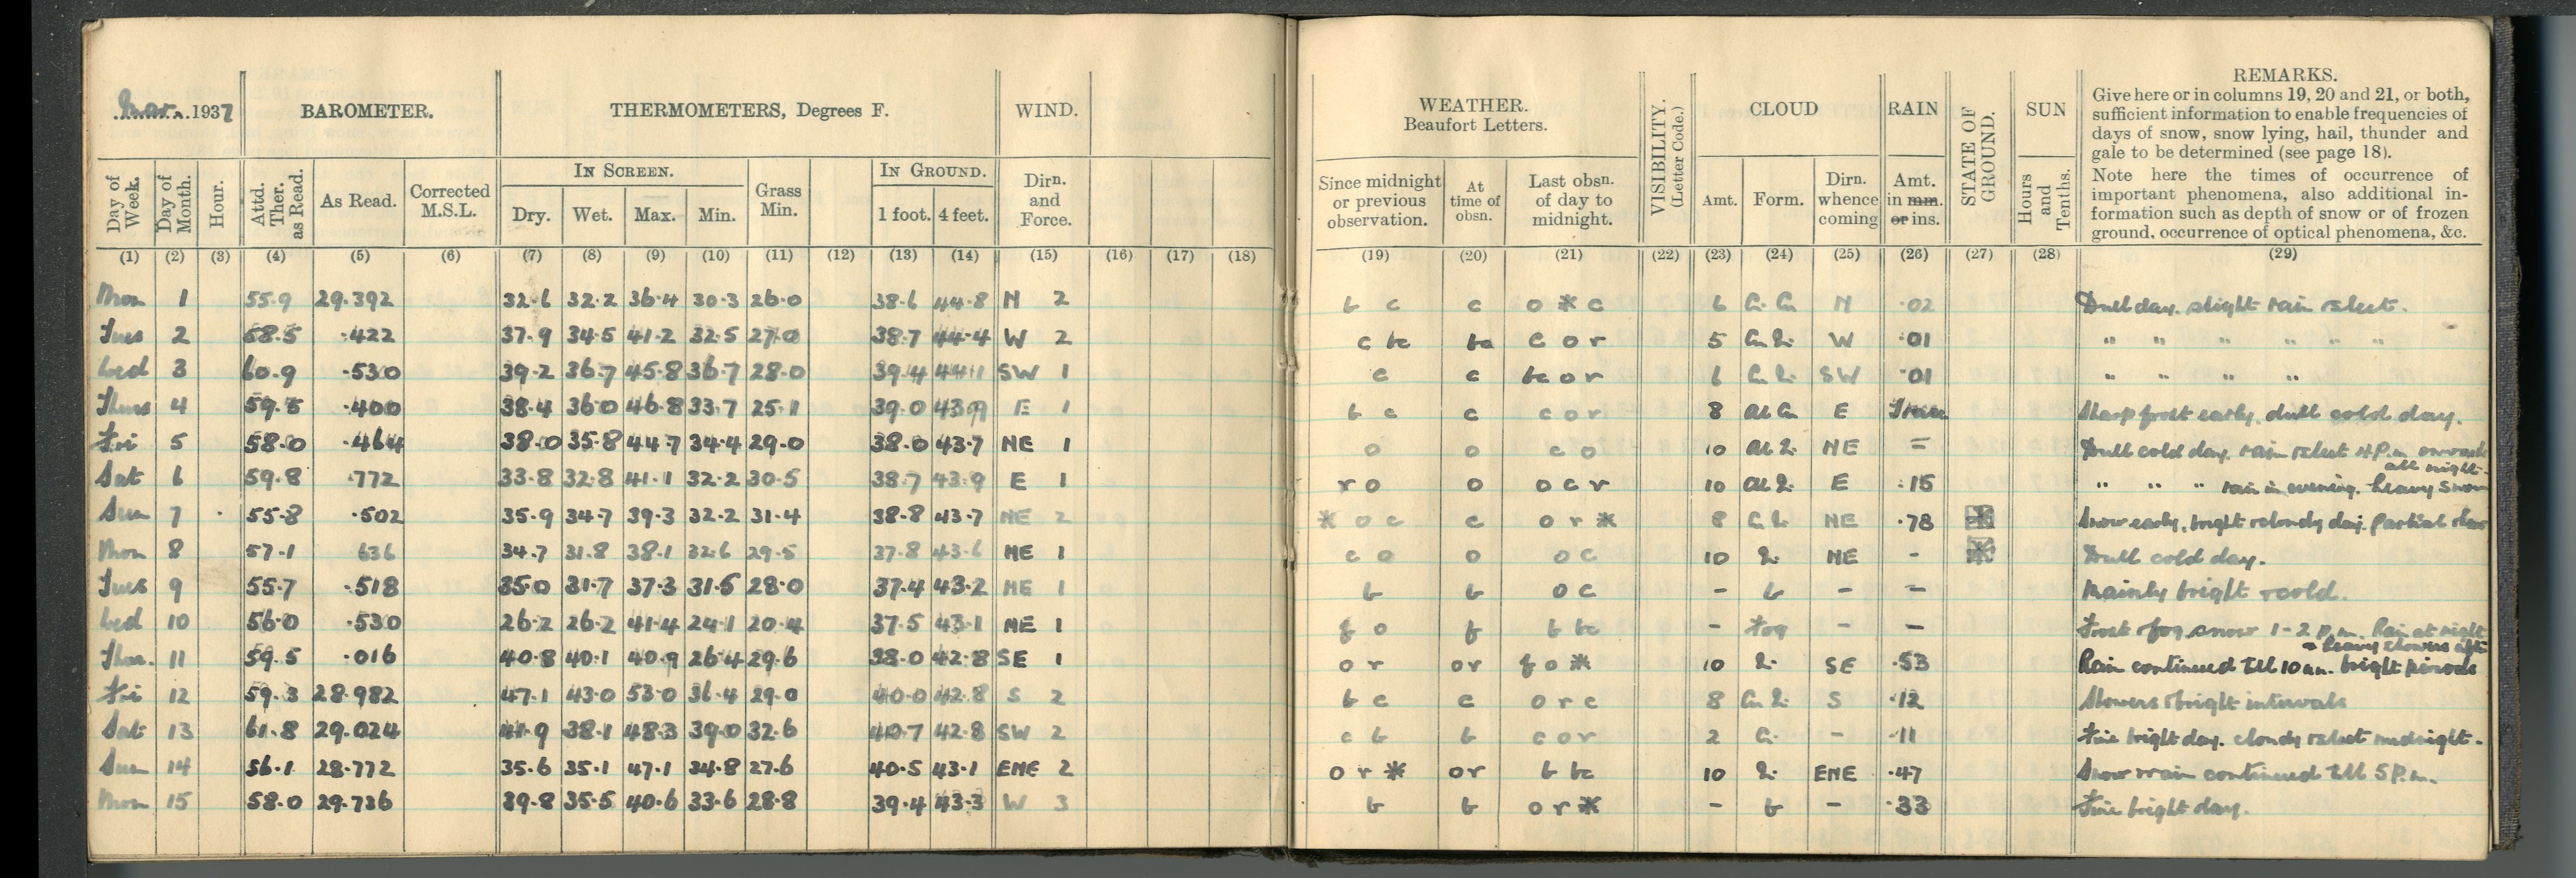 Mar. 1937 BAROMETER. THERMOMETERS, Degrees F. WIND. WEATHER. Beaufort Letters. VISIBILITY. (Letter Code.) CLOUD RAIN STATE OF GROUND. SUN REMARKS.
Give here or in columns 19, 20 and 21, or both,
sufficient information to enable frequencies of
days of snow, snow lying, hail, thunder and
gale to be determined (see page 18).
Note here the times of occurrence of
important phenomena, also additional in-
formation such as depth of snow or of frozen
ground, occurrence of optical phenomena, &c.
IN SCREEN. IN GROUND.
Day of Week. Day of Month. Hour. Attd. Ther. as Read. As Read. Corrected M.S.L. Dry. Wet. Max. Min. Grass Min. 1 foot. 4 feet. Dirn. and Force. Since midnight or previous observation. At time of obsn. Last obsn. of day to midnight. Amt. Form. Dirn. whence coming Amt. in mm. or ins. Hours and Tenths.
(1) (2) (3) (4) (5) (6) (7) (8) (9) (10) (11) (12) (13) (14) (15) (16) (17) (18) (19) (20) (21) (22) (23) (24) (25) (26) (27) (28) (29)
Mon 1 55.9 29.392 32.6 32.2 36.4 30.3 26.0 38.6 44.8 N 2 b c c o * c 6 N .02 Dull day. slight rain & sleet.
Tues 2 58.5 .422 37.9 34.5 41.2 32.5 27.0 38.7 44.4 W 2 c bc c o r 5 W .01 " " " " " "
Wed 3 60.9 .530 39.2 36.7 45.8 36.7 28.0 39.4 44.1 SW 1 c c bc o r 6 SW .01 " " " "
Thurs 4 59.5 .400 38.4 36.0 46.8 33.7 25.1 39.0 43.9 E 1 b c c c o r 8 E Trace Sharp frost early. dull cold day.
Fri 5 58.0 .464 38.0 35.8 44.7 34.4 29.0 38.0 43.7 NE 1 o o c o 10 NE = Dull cold day. rain & sleet 4 P.m. onwards
all night.
Sat 6 59.8 .772 33.8 32.8 41.1 32.2 30.5 38.7 43.9 E 1 r o o o c r 10 E .15 " " " rain in evening. heavy snow
Sun 7 55.8 .502 35.9 34.7 39.3 32.2 31.4 38.8 43.7 NE 2 * o c c o r * 8 NE .78 * Snow early, bright & cloudy day. Partial thaw
Mon 8 57.1 636 34.7 31.8 38.1 32.6 29.5 37.8 43.6 NE 1 c o o o c 10 NE - * Dull cold day.
Tues 9 55.7 .518 35.0 31.7 37.3 31.5 28.0 37.4 43.2 NE 1 b b o c - b - - Mainly bright & cold.
Wed 10 56.0 .530 26.2 26.2 41.4 24.1 20.4 37.5 43.1 NE 1 f o f b bc - Fog - - Frost & fog snow 1-2 p.m. Rain at night
& heavy showers aft
Thur. 11 59.5 .016 40.8 40.1 40.9 26.4 29.6 38.0 42.8 SE 1 o r or f o * 10 SE .53 Rain continued till 10 am. bright periods
Fri 12 59.3 28.982 47.1 43.0 53.0 36.4 29.0 40.0 42.8 S 2 b c c o r c 8 S .12 Showers & bright intervals
Sat 13 61.8 29.024 41.9 38.1 48.3 39.0 32.6 40.7 42.8 SW 2 c b b c o r 2 - .11 Fine bright day. cloudy & sleet midnight.
Sun 14 56.1 28.772 35.6 35.1 47.1 34.8 27.6 40.5 43.1 ENE 2 o r * or b bc 10 ENE .47 Snow & rain continued till 5 P.m.
Mon 15 58.0 29.736 39.8 35.5 40.6 33.6 28.8 39.4 43.3 W 3 b b o r * - b - .33 Fine bright day.